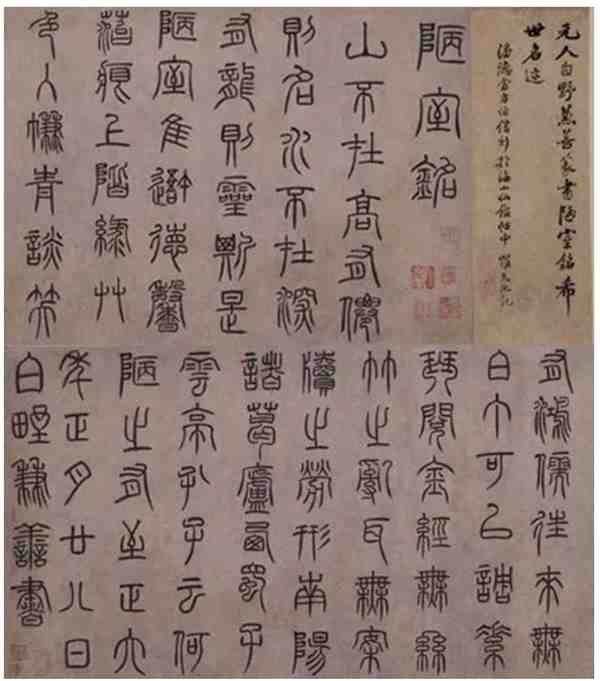 元人白野兼善篆書陋室銘希
世名迹
潘德畬方伯借刻於海山仙館帖中
陋室銘
山不在高有僊
則名水不在深
有龍則靈斯是
陋室隹吾德馨
苔痕上階緑艸
色入簾青談笑
有鴻儒往來無
白丁可以調素
琴閱金經無絲
竹之亂耳無案
牘之勞形南陽
諸葛廬西蜀子
雲亭孔子云何
陋之有至正六
年正月廿八日
白野兼善書